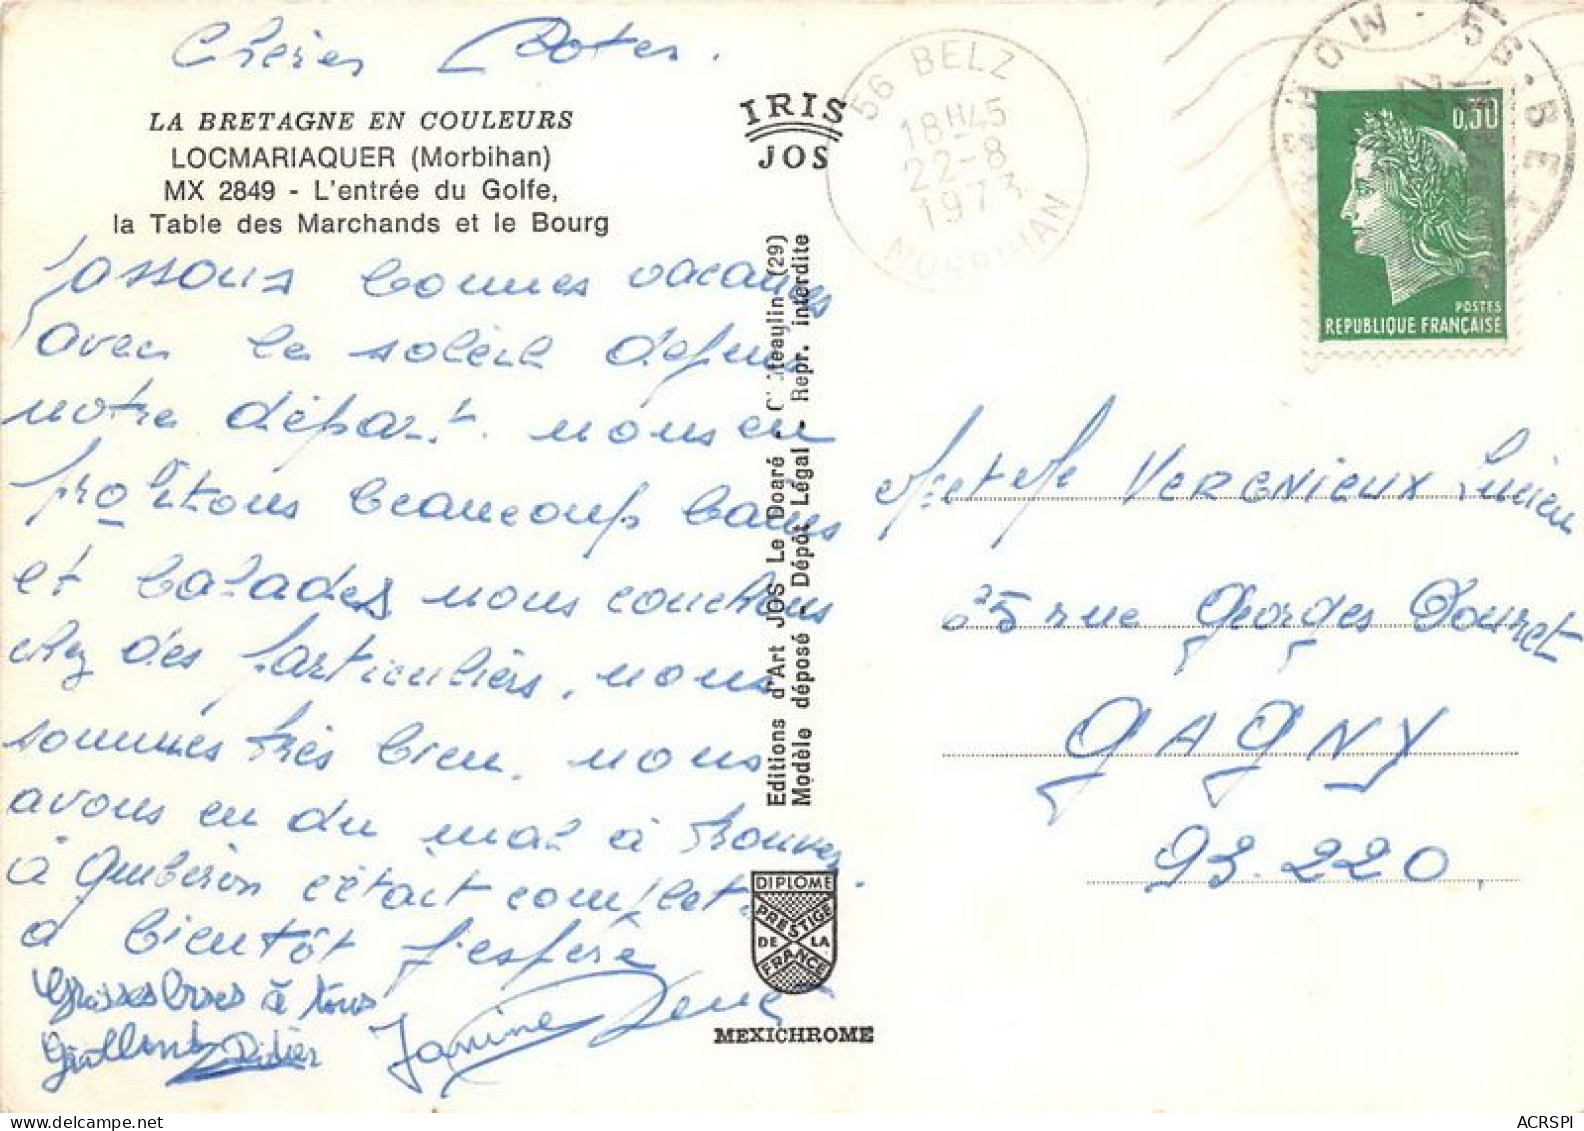 Chères Potes.
LA BRETAGNE EN COULEURS
LOCMARIAQUER (Morbihan)
MX 2849 - L'entrée du Golfe,
la Table des Marchands et le Bourg
passons bonnes vacances
avec le soleil depuis
notre départ. nous en
profitons beaucoup bains
et balades nous couchons
chez des particuliers. nous
sommes très bien. nous
avons eu du mal à trouver
à Quiberon c'était complet.
a bientôt j'espère
Grosses bises à tous
Didier
Janine René
IRIS
JOS
Editions d'Art JOS Le Doaré - Châteaulin (29)
Modèle déposé - Dépôt Légal - Repr. interdite
DIPLOME
PRESTIGE
DE LA
FRANCE
MEXICHROME
56 BELZ
18H45
22-8
1973
MORBIHAN
56.BELZ
0,30
POSTES
REPUBLIQUE FRANÇAISE
Mr et Me VERGNIEUX Lucien
25 rue Georges
GAGNY
93.220.
ACRSPI